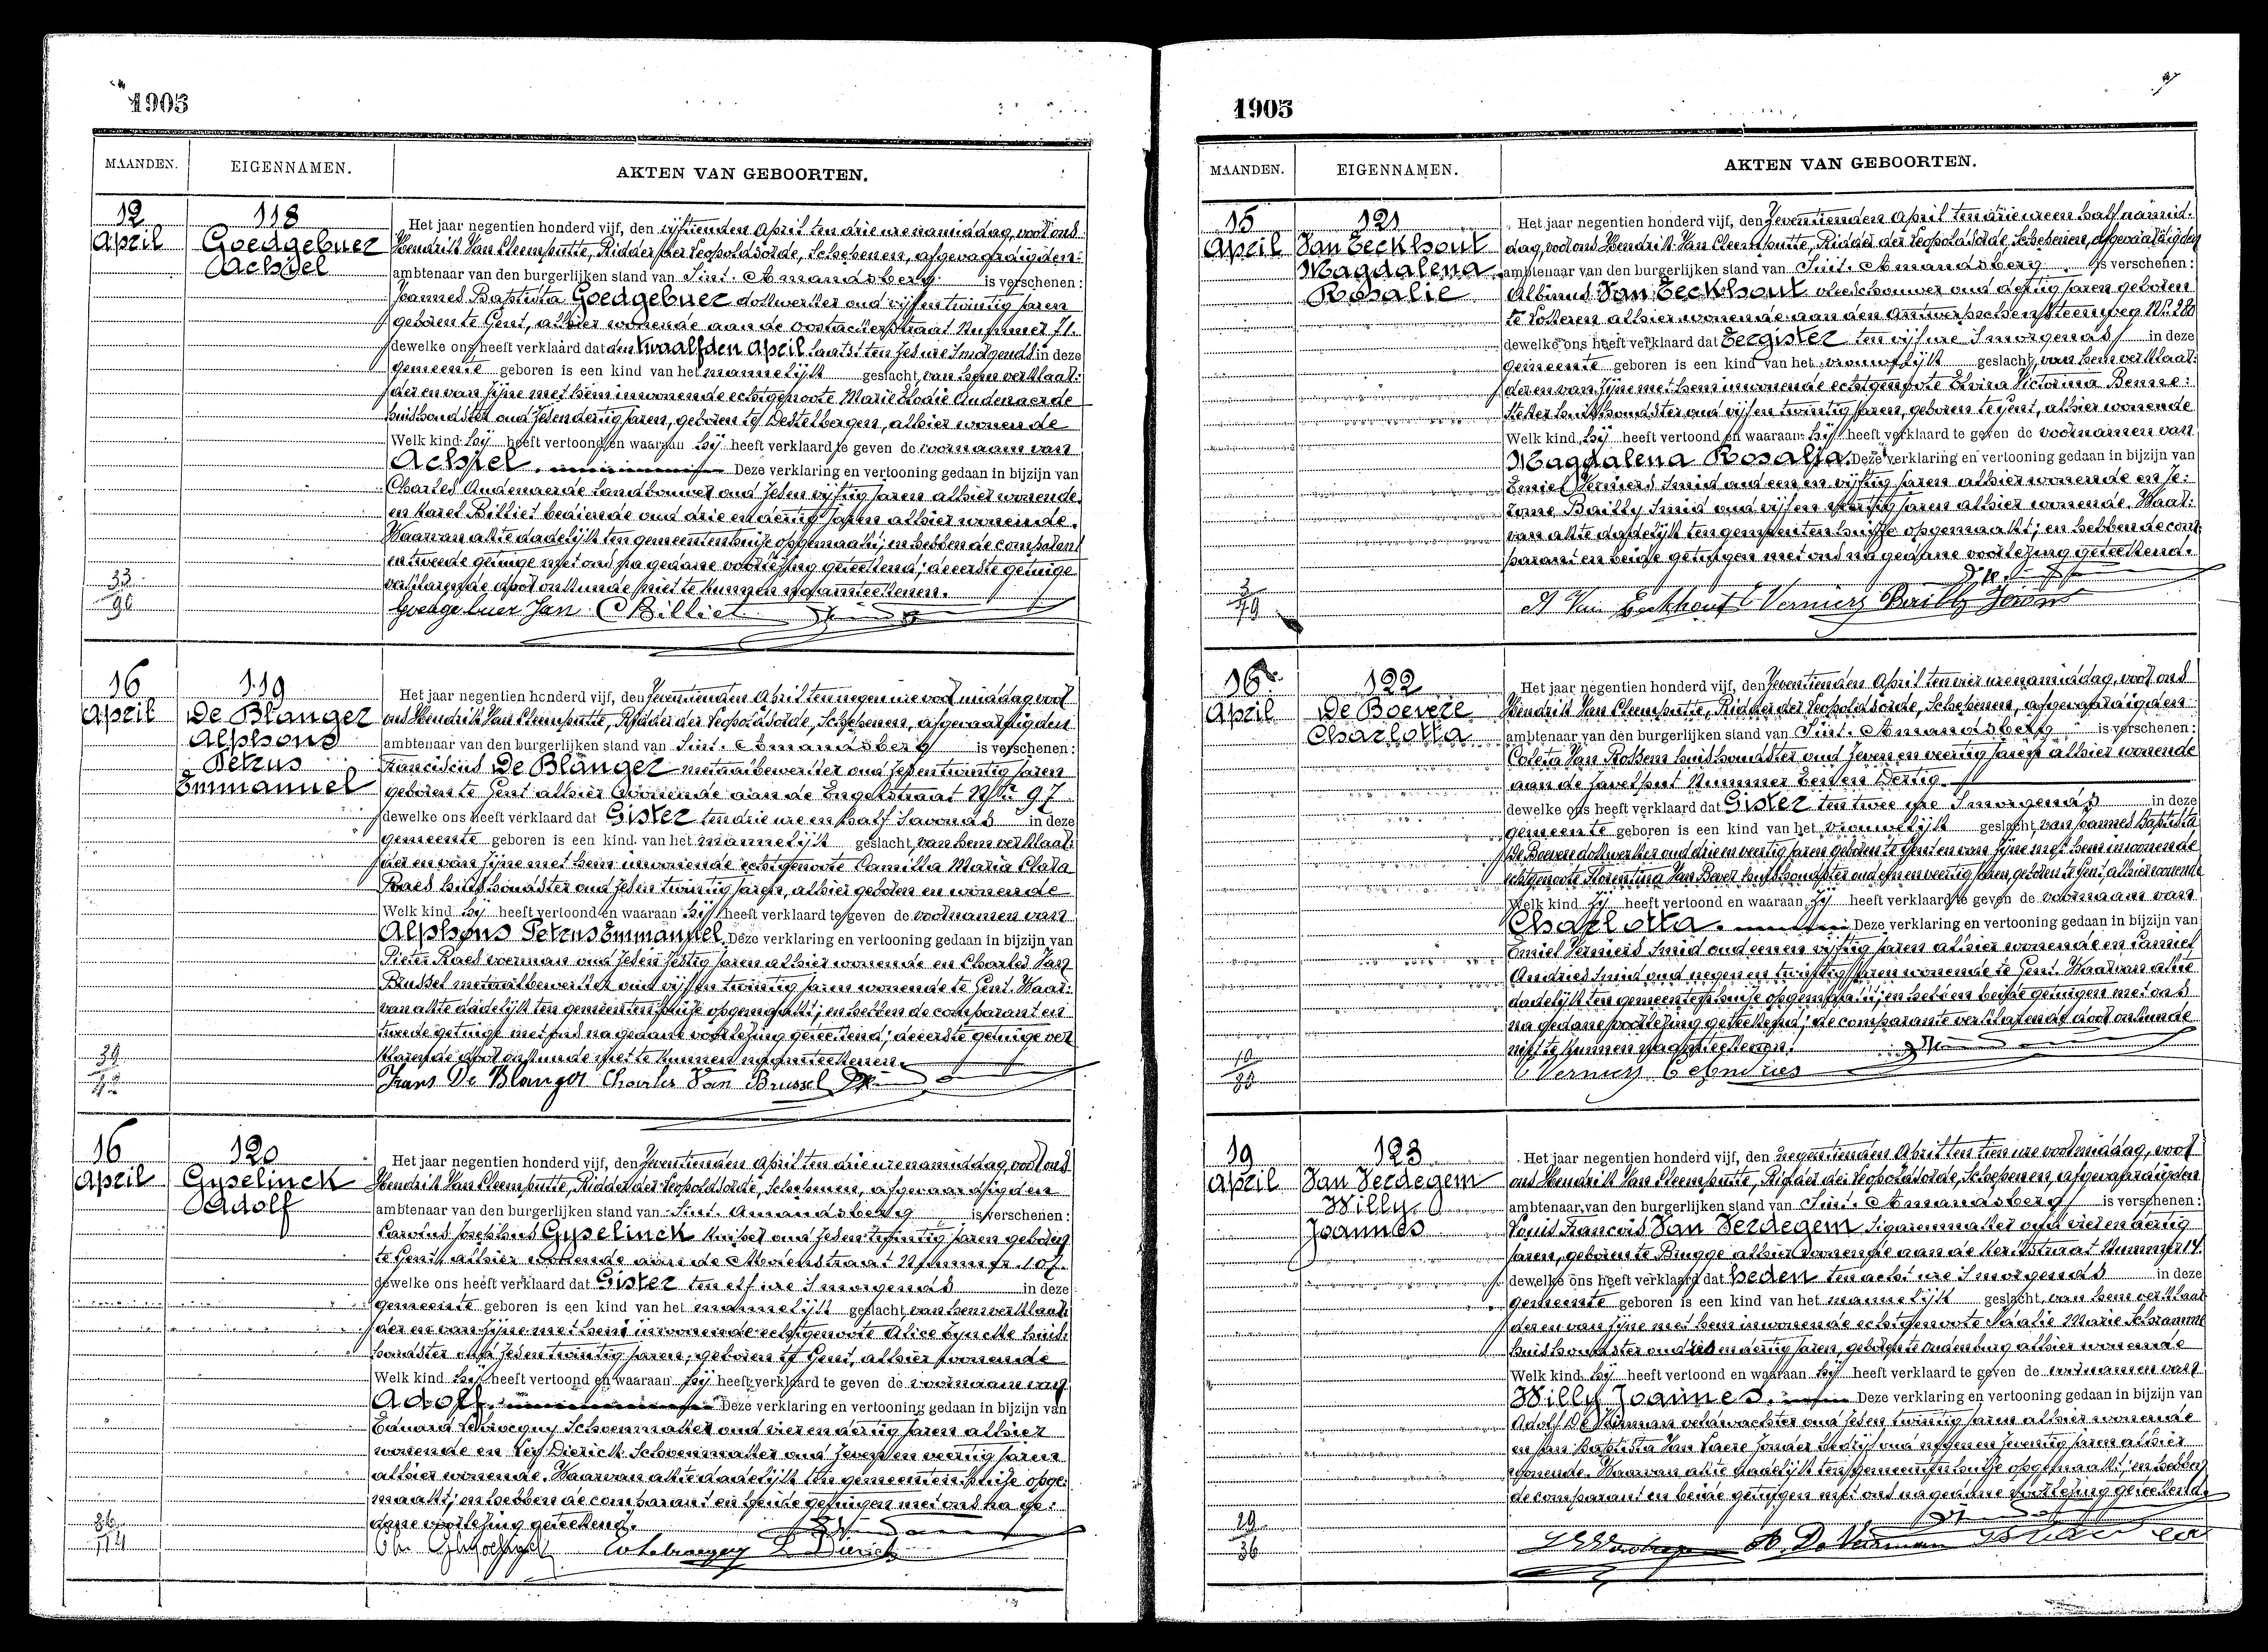 1905
MAANDEN. EIGENNAMEN. AKTEN VAN GEBOORTEN.
12 April
118
Goedgebuer
Achiel
Het jaar negentien honderd vijf, den vijftienden April ten drie ure namiddag, voor ons
Hendrik Van Cleemputte, Ridder der Leopoldsorde, Schepenen, afgevaardigden
ambtenaar van den burgerlijken stand van Sint. Amandsberg is verschenen:
Joannes Baptista Goedgebuer dokwerker oud vijf en twintig jaren
geboren te Gent, alhier wonende aan de Oostackerstraat Nummer 71.
dewelke ons heeft verklaard dat den twaalfden April laatst ten zes ure 's morgends in deze
gemeente geboren is een kind van het mannelijk geslacht, van hem verklaar:
der en van zijne met hem inwonende echtgenoote Marie Elodie Audenaerde
huishoudster oud zes en dertig jaren, geboren te Destelbergen, alhier wonende
Welk kind hij heeft vertoond en waaraan hij heeft verklaard te geven de voornaam van
Achiel. Deze verklaring en vertooning gedaan in bijzijn van
Charles Audenaerde landbouwer oud zes en vijftig jaren alhier wonende
en Karel Billiet bediende oud drie en dertig jaren alhier wonende.
Waarvan akte dadelijk ten gemeentenhuize opgemaakt; en hebben de comparant
en tweede getuige met ons na gedane voorlezing geteekend; de eerste getuige
verklarende door onkunde niet te kunnen naamteekenen.
33
98
Goedgebuer Jan C Billiet
16 April
119
De Blanger
Alphons
Petrus
Emmanuel
Het jaar negentien honderd vijf, den zeventienden April ten negen ure voor middag voor
ons Hendrik Van Cleemputte, Ridder der Leopoldsorde, Schepenen, afgevaardigden
ambtenaar van den burgerlijken stand van Sint. Amandsberg is verschenen:
Franciscus De Blanger metaalbewerker oud zes en twintig jaren
geboren te Gent alhier wonende aan de Engelstraat Nr 97
dewelke ons heeft verklaard dat Gister ten drie ure en half 's avonds in deze
gemeente geboren is een kind van het mannelijk geslacht, van hem verklaar:
der en van zijne met hem inwonende echtgenoote Camilla Maria Clara
Raes huishoudster oud zes en twintig jaren, alhier geboren en wonende
Welk kind hij heeft vertoond en waaraan hij heeft verklaard te geven de voornamen van
Alphons Petrus Emmanuel. Deze verklaring en vertooning gedaan in bijzijn van
Pieter Raes voerman oud zes en zestig jaren alhier wonende en Charles Van
Brussel metaalbewerker oud vijf en twintig jaren wonende te Gent. Waar:
van akte dadelijk ten gemeentenhuize opgemaakt; en hebben de comparant en
tweede getuige met ons na gedane voorlezing geteekend; de eerste getuige ver
klarende door onkunde niet te kunnen naamteekenen.
Frans De Blanger Charles Van Brussel
16 April
120
Gyselinck
Adolf
Het jaar negentien honderd vijf, den zeventienden April ten drie ure namiddag, voor ons
Hendrik Van Cleemputte, Ridder der Leopoldsorde, Schepenen, afgevaardigden
ambtenaar van den burgerlijken stand van Sint. Amandsberg is verschenen:
Carolus Josephus Gyselinck kuiper oud zes en twintig jaren geboren
te Gent alhier wonende aan de Nummer 107.
dewelke ons heeft verklaard dat Gister ten elf ure 's morgends in deze
gemeente geboren is een kind van het mannelijk geslacht, van hem verklaar:
der en van zijne met hem inwonende echtgenoote Alice Lyncke huis:
houdster oud zes en twintig jaren, geboren te Gent, alhier wonende
Welk kind hij heeft vertoond en waaraan hij heeft verklaard te geven de voornaam van
Adolf. Deze verklaring en vertooning gedaan in bijzijn van
Eduard Schoenmaker oud vier en dertig jaren alhier
wonende en Leo Dierick Schoenmaker oud zeven en veertig jaren
alhier wonende. Waarvan akte dadelijk ten gemeentenhuize opge:
maakt; en hebben de comparant en beide getuigen met ons na ge:
dane voorlezing geteekend.
114
L Dierick
1905
MAANDEN. EIGENNAMEN. AKTEN VAN GEBOORTEN.
15 April
121
Van Eeckhout
Magdalena
Rosalie
Het jaar negentien honderd vijf, den zeventienden April ten drie uren half namid:
dag, voor ons Hendrik Van Cleemputte, Ridder der Leopoldsorde, Schepenen, afgevaardigden
ambtenaar van den burgerlijken stand van Sint. Amandsberg is verschenen:
Albinus Van Eeckhout vleeschouwer oud dertig jaren geboren
te Lokeren alhier wonende aan den Antwerpschensteenweg Nr. 28
dewelke ons heeft verklaard dat Eergister ten vijf ure 's morgends in deze
gemeente geboren is een kind van het vrouwelijk geslacht, van hem verklaar:
der en van zijne met hem inwonende echtgenoote Elvira Victorina Benne:
steker huishoudster oud vijf en twintig jaren, geboren te Gent, alhier wonende
Welk kind hij heeft vertoond en waaraan hij heeft verklaard te geven de voornamen van
Magdalena Rosalia. Deze verklaring en vertooning gedaan in bijzijn van
Emiel Verniers smid oud een en vijftig jaren alhier wonende en Je:
rome Bailly smid oud vijf en jaren alhier wonende. Waar:
van akte dadelijk ten gemeentenhuize opgemaakt; en hebben de com:
parant en beide getuigen met ons na gedane voorlezing geteekend.
3
79
A Van Eeckhout E Verniers Bailly Jerome
16 April
122
De Boevere
Charlotta
Het jaar negentien honderd vijf, den zeventienden April ten vier ure namiddag, voor ons
Hendrik Van Cleemputte, Ridder der Leopoldsorde, Schepenen, afgevaardigden
ambtenaar van den burgerlijken stand van Sint. Amandsberg is verschenen:
Coleta Van Rossem huishoudster oud zeven en veertig jaren alhier wonende
aan de Zavelput Nummer Een en Dertig.
dewelke ons heeft verklaard dat Gister ten twee ure 's morgends in deze
gemeente geboren is een kind van het vrouwelijk geslacht, van Joannes Baptista
De Boevere dokwerker oud drie en veertig jaren geboren te Gent en van zijne met hem inwonende
echtgenoote Florentina Van Bever huishoudster oud een en veertig jaren, geboren te Gent, alhier wonende
Welk kind zij heeft vertoond en waaraan zij heeft verklaard te geven de voornaam van
Charlotta. Deze verklaring en vertooning gedaan in bijzijn van
Emiel Verniers smid oud een en vijftig jaren alhier wonende en Camiel
Andries smid oud negen en twintig jaren wonende te Gent. Waarvan akte
dadelijk ten gemeentenhuize opgemaakt; en hebben beide getuigen met ons
na gedane voorlezing geteekend; de comparante verklarende door onkunde
niet te kunnen naamteekenen.
E Verniers C Andries
19 April
123
Van Verdegem
Willy
Joannes
Het jaar negentien honderd vijf, den negentienden April ten tien ure voormiddag, voor
ons Hendrik Van Cleemputte, Ridder der Leopoldsorde, Schepenen, afgevaardigden
ambtenaar van den burgerlijken stand van Sint. Amandsberg is verschenen:
Louis Francois Van Verdegem sigarenmaker oud vier en dertig
jaren, geboren te Brugge alhier wonende aan de Kerkstraat Nummer 14.
dewelke ons heeft verklaard dat heden ten acht ure 's morgends in deze
gemeente geboren is een kind van het mannelijk geslacht, van hem verklaar
der en van zijne met hem inwonende echtgenoote Natalie Marie Schramme
huishoudster oud en dertig jaren, geboren te Oudenburg alhier wonende
Welk kind hij heeft vertoond en waaraan hij heeft verklaard te geven de voornamen van
Willy Joannes. Deze verklaring en vertooning gedaan in bijzijn van
Adolf De Veirman veldwachter oud zes en twintig jaren alhier wonende
en Jan Baptista Van Laere zonder bedrijf oud negen en zeventig jaren alhier
wonende. Waarvan akte dadelijk ten gemeentenhuize opgemaakt; en hebben
de comparant en beide getuigen met ons na gedane voorlezing geteekend.
29
36
A. De Veirman